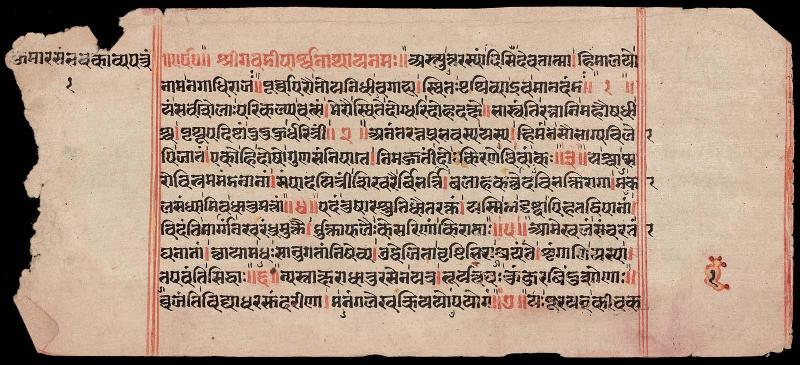 कुमारसंभवकाव्यपत्रं
१
श्रीगवडीपार्श्वनाथायनमः॥ अस्त्युत्तरस्यांदिसिदेवतात्मा। हिमालयो
नामनगाधिराजः॥ पूर्वापरौतोयनिधीवगाह्य। स्थितःपृथिव्याइवमानदंडः॥१॥
यंसर्वशैलाःपरिकल्पवत्सं। मेरौस्थितेदोग्धरिदोहदक्षे। भास्वंतिरत्नानिमहौषधी
श्च। पृथूपदिष्टांदुदुहुर्धरित्रीं॥२॥ अनंतरत्नप्रभवस्ययस्य। हिमंनसौभाग्यविले
पिजातं। एकोहिदोषोगुणसंनिपाते। निमज्जतींदोःकिरणेष्विवांकः॥३॥ यश्चाप्स
रोविभ्रममंडनानां। संपादयित्रींशिखरैर्बिभर्त्ति। बलाहकच्छेदविभक्तिरागा। मका
लसंध्यामिवधातुमत्तां॥४॥ पदंतुषारस्त्रुतिधौतरक्तं। यस्मिन्नदृष्ट्वापिहतद्विपानां।
विदंतिमार्गंनखरंध्रमुक्तै। र्मुक्ताफलैःकेसरिणांकिराताः॥५॥ आमेखलंसंचरतां
घनानां। छायामधःसानुगतांनिषेव्य। उद्वेजितावृष्टिभिराश्रयंते। शृंगाणियस्या
तपवंतिसिद्धाः॥६॥ न्यस्ताक्षराधातुरसेनयत्र। कुंजरबिंदुशोणाः॥
व्रजंतिविद्याधरसुंदरीणा। मनंगलेखक्रिययोपयोगं॥७॥ यःपूरयन्कीचक
१